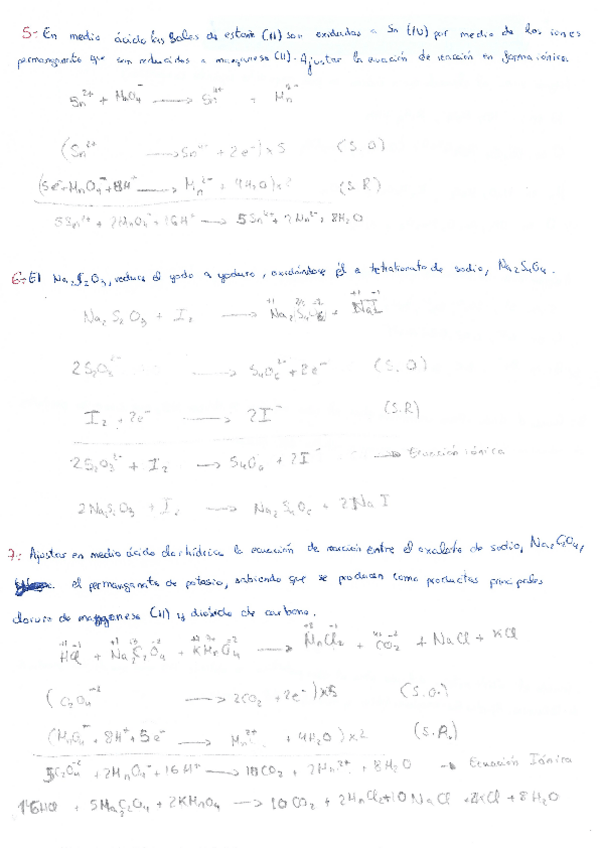 5- En medio ácido las sales de estaño (II) son oxidadas a Sn (IV) por medio de los iones
permanganato que son reducidos a manganeso (II). Ajustar la ecuación de reacción en forma iónica.
Sn²⁺ + MnO₄⁻ ⟶ Sn⁴⁺ + Mn²⁺
(Sn²⁺ ⟶ Sn⁴⁺ + 2e⁻) x 5 (S.O)
(5e⁻ + MnO₄⁻ + 8H⁺ ⟶ Mn²⁺ + 4H₂O) x 2 (S.R)
5Sn²⁺ + 2MnO₄⁻ + 16H⁺ ⟶ 5Sn⁴⁺ + 2Mn²⁺ + 8H₂O
6- El Na₂S₂O₃, reduce el yodo a yoduro, oxidándose él a tetrationato de sodio, Na₂S₄O₆.
+1 2/5 -2 +1 -1
Na₂S₂O₃ + I₂ ⟶ Na₂S₄O₆ + NaI
2S₂O₃²⁻ ⟶ S₄O₆²⁻ + 2e⁻ (S.O)
I₂ + 2e⁻ ⟶ 2I⁻ (S.R)
2S₂O₃²⁻ + I₂ ⟶ S₄O₆ + 2I⁻ → Ecuación iónica
2Na₂S₂O₃ + I₂ ⟶ Na₂S₄O₆ + 2NaI
7- Ajustar en medio ácido clorhídrico la ecuación de reacción entre el oxalato de sodio, Na₂C₂O₄,
el permanganato de potasio, sabiendo que se producen como productos principales
cloruro de manganeso (II) y dióxido de carbono.
HCl + Na₂C₂O₄ + KMnO₄ ⟶ MnCl₂ + CO₂ + NaCl + KCl
(C₂O₄⁻² ⟶ 2CO₂ + 2e⁻) x 5 (S.O.)
(MnO₄⁻ + 8H⁺ + 5e⁻ ⟶ Mn²⁺ + 4H₂O) x 2 (S.R.)
5C₂O₄⁻² + 2MnO₄⁻ + 16H⁺ ⟶ 10CO₂ + 2Mn²⁺ + 8H₂O → Ecuación Iónica
16HCl + 5Na₂C₂O₄ + 2KMnO₄ ⟶ 10CO₂ + 2MnCl₂ + 10NaCl + 2KCl + 8H₂O